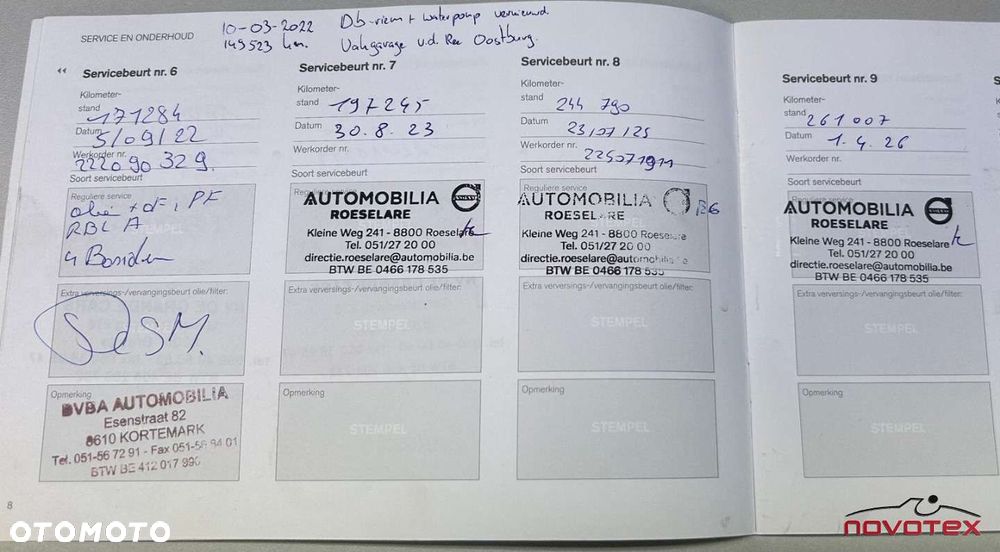 SERVICE EN ONDERHOUD
10-03-2022 Db-riem + waterpomp vernieuwd
149523 km. Vakgarage v.d. Ree Oostburg.
Servicebeurt nr. 6
Kilometer-
stand 171284
Datum 5/09/22
Werkorder nr.
222090329.
Soort servicebeurt
Reguliere service
olie + oF, PF
RBL A
4 Banden
STEMPEL
Extra verversings-/vervangingsbeurt olie/filter:
Opmerking
BVBA AUTOMOBILIA
Esenstraat 82
8610 KORTEMARK
Tel. 051-56 72 91 - Fax 051-56 94 01
BTW BE 412 017 990
8
Servicebeurt nr. 7
Kilometer-
stand 197245
Datum 30.8.23
Werkorder nr.
Soort servicebeurt
Reguliere service
AUTOMOBILIA VOLVO
ROESELARE
Kleine Weg 241 - 8800 Roeselare
Tel. 051/27 20 00
directie.roeselare@automobilia.be
BTW BE 0466 178 535
Extra verversings-/vervangingsbeurt olie/filter:
STEMPEL
Opmerking
STEMPEL
Servicebeurt nr. 8
Kilometer-
stand 244 790
Datum 23/07/25
Werkorder nr.
225071911
Soort servicebeurt
Reguliere service
AUTOMOBILIA
ROESELARE
Kleine Weg 241 - 8800 Roeselare
Tel. 051/27 20 00
directie.roeselare@automobilia.be
BTW BE 0466 178 535
Extra verversings-/vervangingsbeurt olie/filter:
STEMPEL
Opmerking
STEMPEL
Servicebeurt nr. 9
Kilometer-
stand 261007
Datum 1.4.26
Werkorder nr.
Soort servicebeurt
Reguliere service
AUTOMOBILIA VOLVO
ROESELARE
Kleine Weg 241 - 8800 Roeselare
Tel. 051/27 20 00
directie.roeselare@automobilia.be
BTW BE 0466 178 535
Extra verversings-/vervangingsbeurt olie/filter:
STEMPEL
Opmerking
STEMPEL
OTOMOTO
novotex